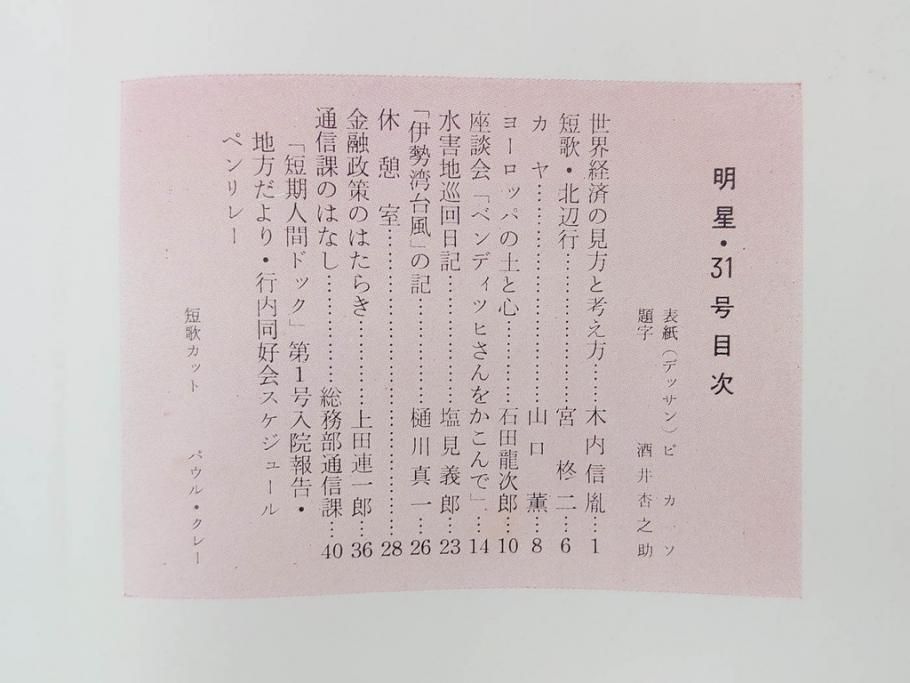 明星・31号目次
表紙（デッサン）ピカソ
題字　酒井杏之助
世界経済の見方と考え方……木内信胤…1
短歌・北辺行……………宮　柊二…6
カヤ……………………山口　薫…8
ヨーロッパの土と心…………石田龍次郎…10
座談会「ベンディッヒさんをかこんで」…14
水害地巡回日記……………塩見義郎…23
「伊勢湾台風」の記…………樋川真一…26
休憩室……………………………28
金融政策のはたらき…………上田連一郎…36
通信課のはなし……………総務部通信課…40
「短期人間ドック」第1号入院報告・
地方だより・行内同好会スケジュール
ペンリレー
短歌カット　パウル・クレー